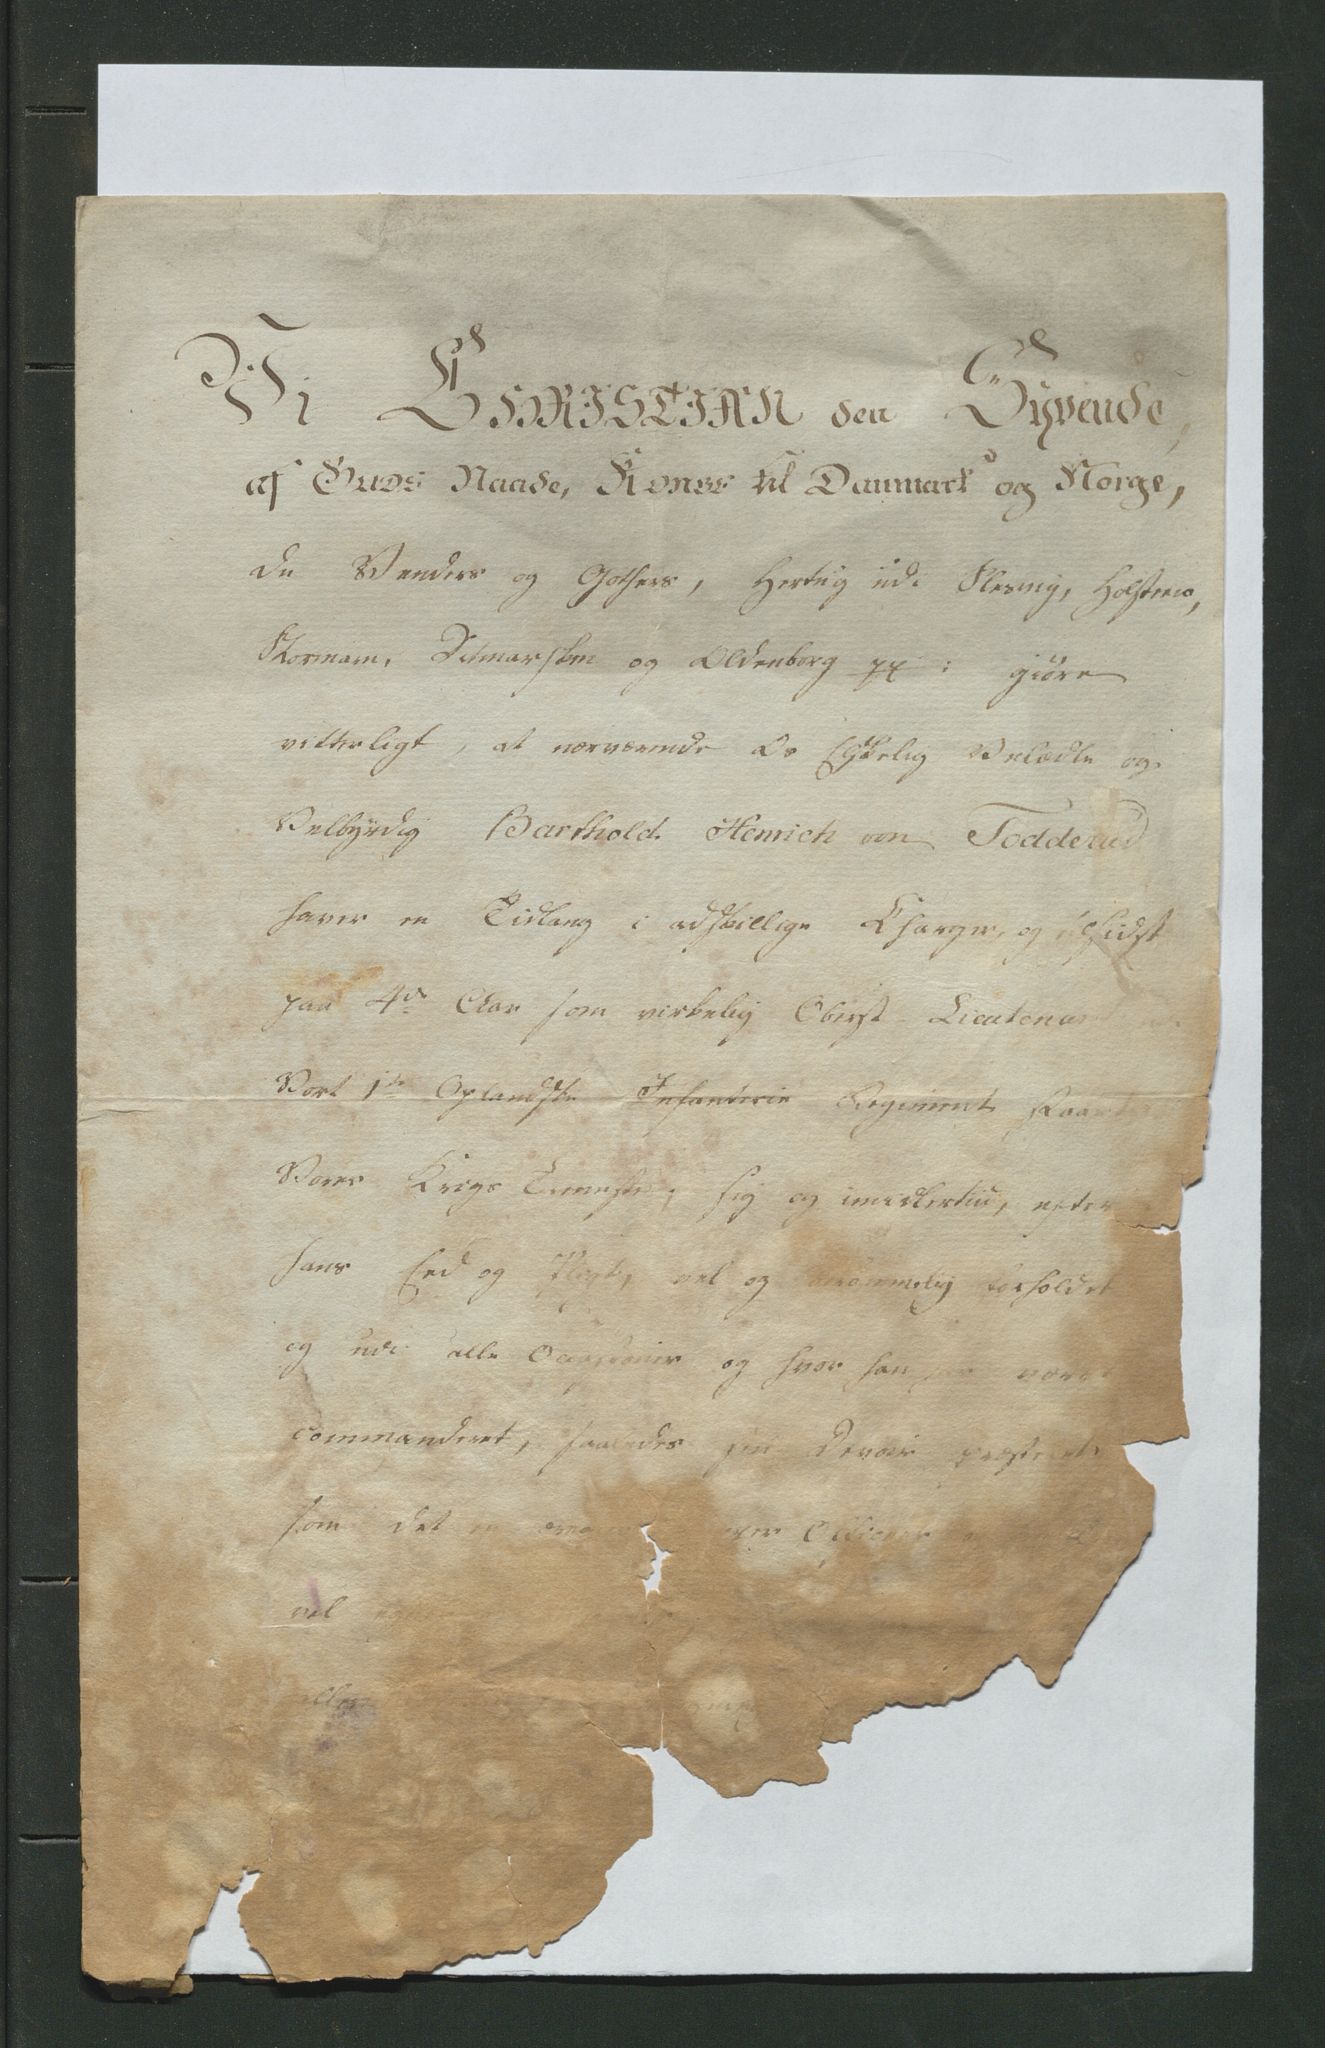 Vi CHRISTIAN den Syvende,
af Guds Naade, Konge til Danmark og Norge,
de Venders og Gothers, Hertug udi Slesvig, Holsteen,
Stormarn, Ditmarsken og Oldenborg pp: giöre
vitterligt, at nærværende Os Elskelig Velædle og
Velbyrdig Barthold Henrich von Todderud
haver en Tidlang i adskillige Charger, og tilsidst
paa 4de Aar som virkelig Oberst Lieutenant
Vort 1te Oplandske Infanterie Regiment staaet
Vores Krigs Tieneste; sig og imidlertid, efter
hans Eed og Pligt, vel og berømmelig forholdet
og udi alle Occasioner og hvor han har været
commanderet, saaledes sin Devoir præsteret
som det en Officer
vel